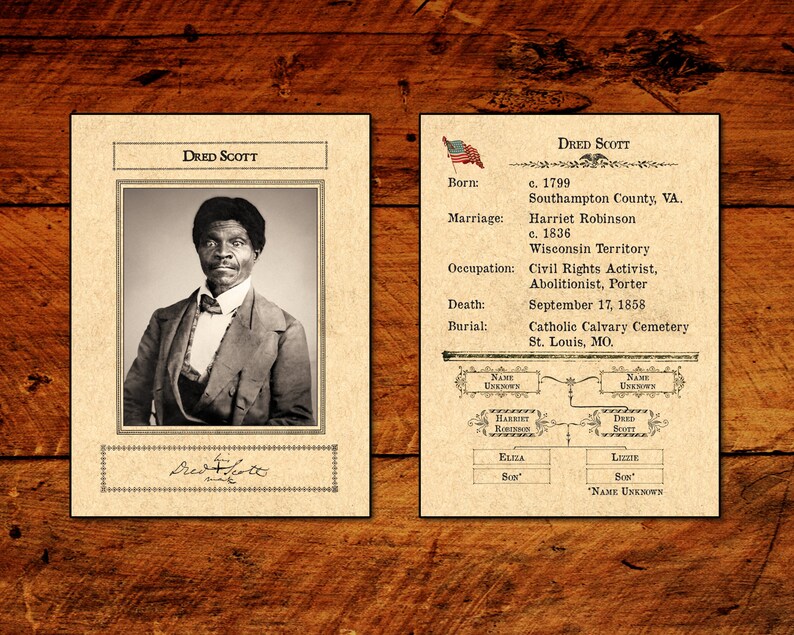 Dred Scott
his
Dred + Scott
mark
Dred Scott
Born: c. 1799
Southampton County, VA.
Marriage: Harriet Robinson
c. 1836
Wisconsin Territory
Occupation: Civil Rights Activist,
Abolitionist, Porter
Death: September 17, 1858
Burial: Catholic Calvary Cemetery
St. Louis, MO.
Name Unknown
Name Unknown
Harriet Robinson
Dred Scott
Eliza Lizzie
Son* Son*
*Name Unknown